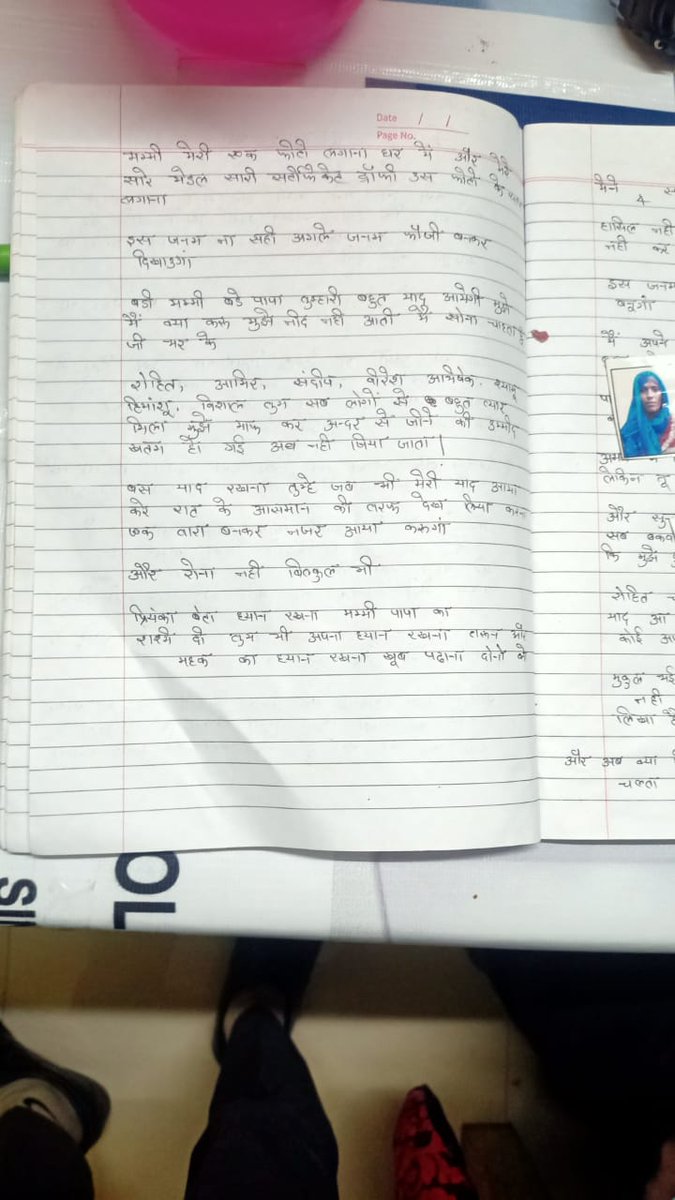 Date / /
Page No.
मम्मी मेरी एक फोटो लगाना घर में और मेरे
सारे मेडल सारी सर्टीफिकेट ट्रॉफी उस फोटो के
लगाना
इस जनम ना सही अगले जनम फौजी बनकर
दिखाउगां
बडी मम्मी बडे पापा तुम्हारी बहुत याद आयेगी मुझे
मैं क्या करू मुझे नीद नही आती मैं सोना चाहता हूँ
जी भर के
रोहित, आमिर, संदीप, वीरेश अभिषेक. श्यामू
हिमांशू. विशाल तुम सब लोगों से बहुत प्यार
मिला मुझे माफ कर अन्दर से जीने की उम्मीद
खतम हो गई अब नही जिया जाता |
बस याद रखना तुम्हे जब भी मेरी याद आया
करे रात के आसमान की तरफ देख लिया करना
एक तारा बनकर नजर आया करूगां
और रोना नही बिल्कुल भी
प्रियंका बेटा ध्यान रखना मम्मी पापा का
राशी दी तुम भी अपना ध्यान रखना और
महक का ध्यान रखना खूब पढाना दोनो को
मैने
4
हासिल नही
नही कर
इस जनम
बनूगां
मैं अपने
लेकिन तू
और
सब
कि मुझे
रोहित
याद आ
कोई
मुकुल भाई
नही
लिखा है
और अब क्या
चलता
OL
SI